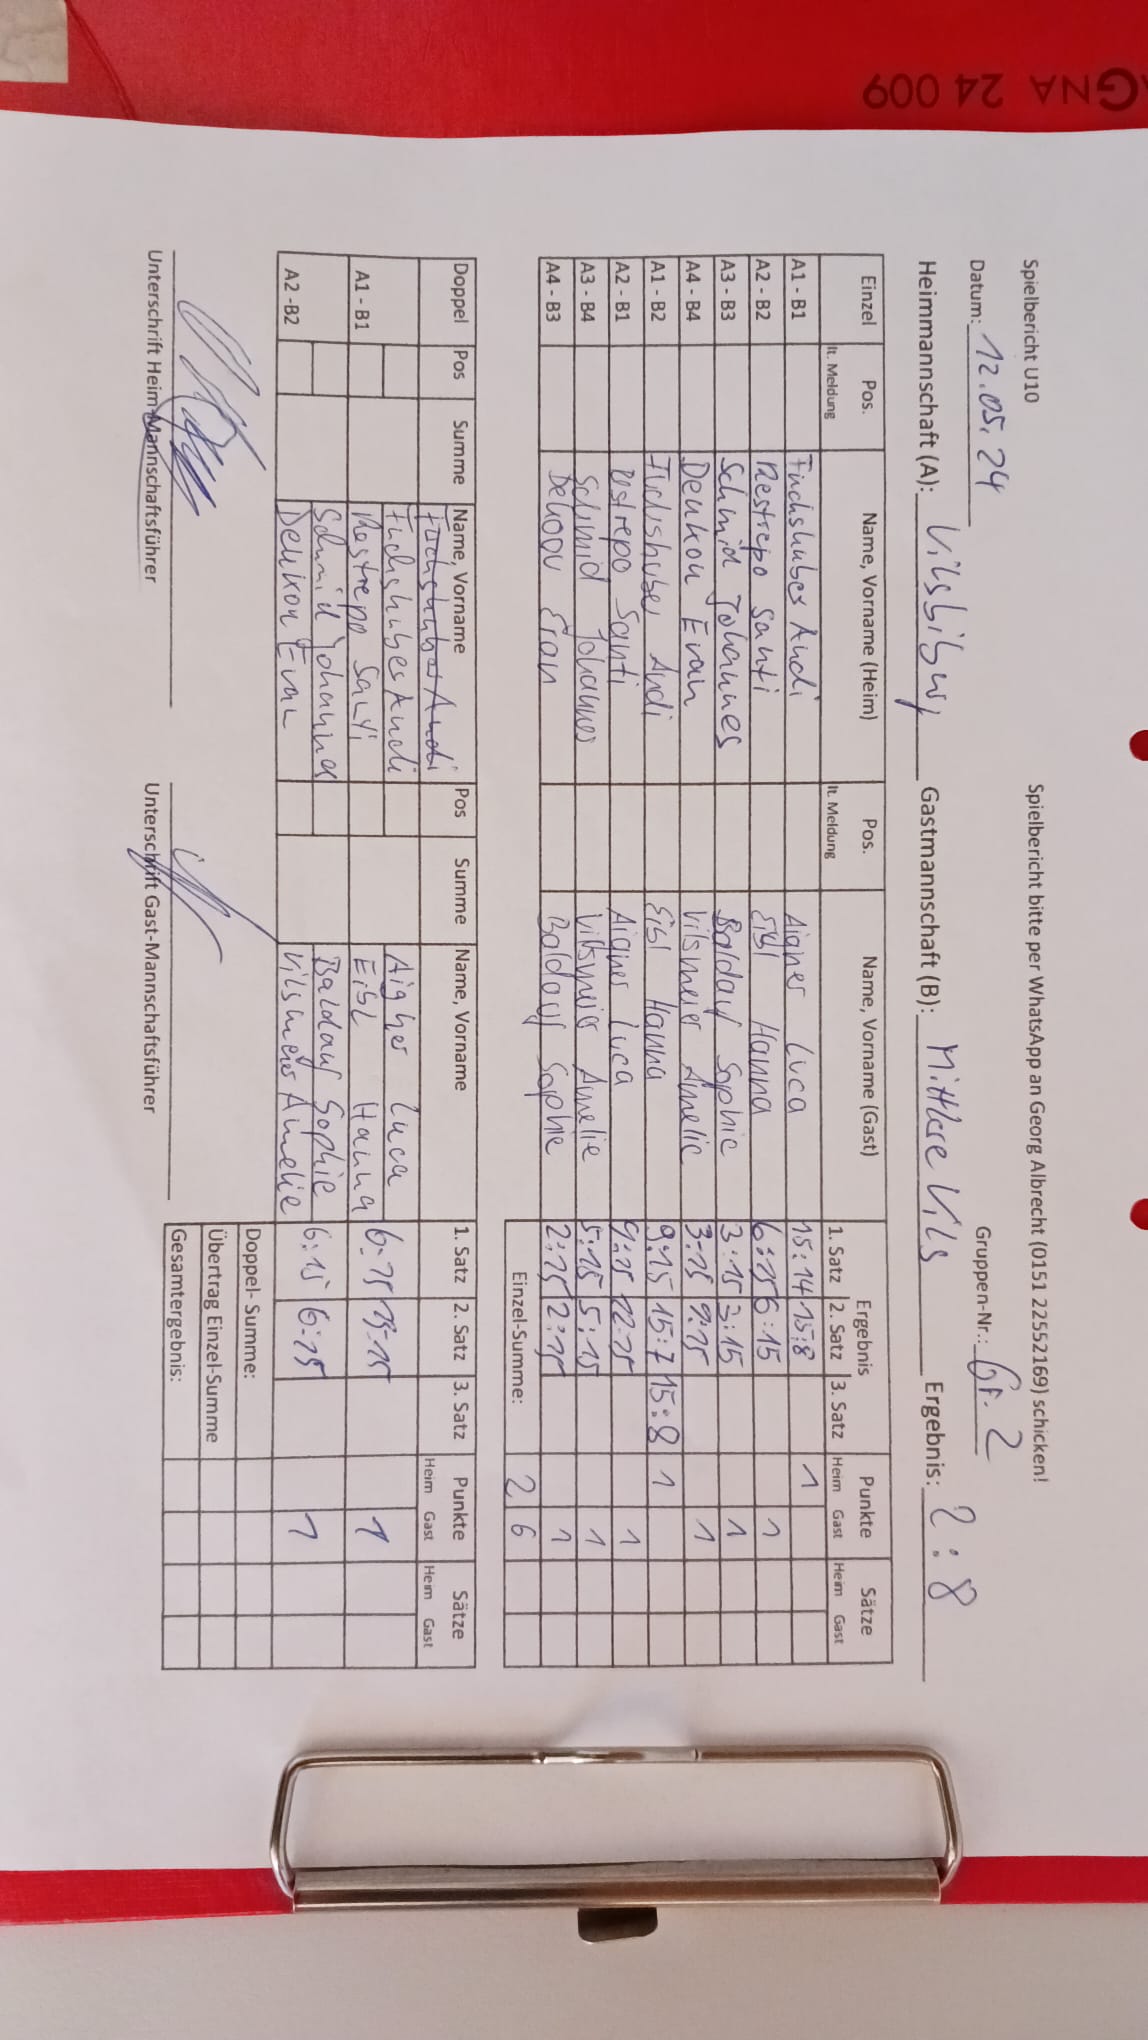 GNA 24 009
Spielbericht U10 Spielbericht bitte per WhatsApp an Georg Albrecht (0151 22552169) schicken!
Datum: 12.05.24 Gruppen-Nr.: Gr. 2
Heimmannschaft (A): Vilsbiburg Gastmannschaft (B): Mittlere Vils Ergebnis: 2:8
Einzel Pos. Name, Vorname (Heim) Pos. Name, Vorname (Gast) Ergebnis Punkte Sätze
lt. Meldung lt. Meldung 1. Satz 2. Satz 3. Satz Heim Gast Heim Gast
A1 - B1 Fuchshuber Andi Aigner Luca 15:14 15:8 1
A2 - B2 Restrepo Santi Eibl Hanna 6:15 6:15 1
A3 - B3 Schmid Johannes Baldauf Sophie 3:15 3:15 1
A4 - B4 Deukon Evan Vilsmeier Amelie 3:15 9:15 1
A1 - B2 Fuchshuber Andi Eibl Hanna 9:15 15:7 15:8 1
A2 - B1 Restrepo Santi Aigner Luca 9:15 12:15 1
A3 - B4 Schmid Johannes Vilsmeier Amelie 5:15 5:15 1
A4 - B3 Evan Baldauf Sophie 2:15 2:15 1
Einzel-Summe: 2 6
Doppel Pos Summe Name, Vorname Pos Summe Name, Vorname 1. Satz 2. Satz 3. Satz Punkte Sätze
Fuchshuber Andi Heim Gast Heim Gast
A1 - B1 Fuchshuber Andi Aigner Luca 6:15 13:15 1
Restrepo Santi Eibl Hanna
A2 -B2 Schmid Johannes Baldauf Sophie 6:15 6:15 1
Deukon Evan Vilsmeier Amelie
Doppel- Summe:
Übertrag Einzel-Summe
Gesamtergebnis:
Unterschrift Heim-Mannschaftsführer Unterschrift Gast-Mannschaftsführer